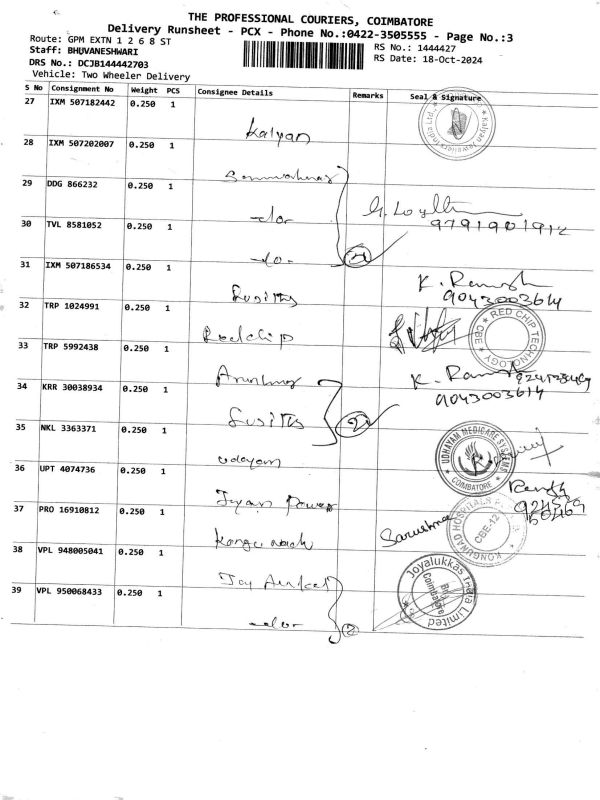 THE PROFESSIONAL COURIERS, COIMBATORE
Delivery Runsheet - PCX - Phone No.:0422-3505555 - Page No.:3
Route: GPM EXTN 1 2 6 8 ST
RS No.: 1444427
Staff: BHUVANESHWARI
RS Date: 18-Oct-2024
DRS No.: DCJB144442703
Vehicle: Two Wheeler Delivery
S No Consignment No Weight PCS Consignee Details Remarks Seal & Signature
27 IXM 507182442 0.250 1 Kalyan
28 IXM 507202007 0.250 1
29 DDG 866232 0.250 1 -do-
9791901912
30 TVL 8581052 0.250 1 -do-
31 IXM 507186534 0.250 1 K. Ramesh
9043003614
32 TRP 1024991 0.250 1 Redchip RED CHIP TECHNOLOGY CBE
33 TRP 5992438 0.250 1 K. Ramesh
9043003614
34 KRR 30038934 0.250 1 2
35 NKL 3363371 0.250 1 Udayam UDHAYAM MEDICARE SYSTEMS COIMBATORE
36 UPT 4074736 0.250 1 Jeyam Power
37 PRO 16910812 0.250 1 KONGUNAD HOSPITALS CBE-12
38 VPL 948005041 0.250 1 Joy
39 VPL 950068433 0.250 1 -do- 2 Joyalukkas India Limited Coimbatore